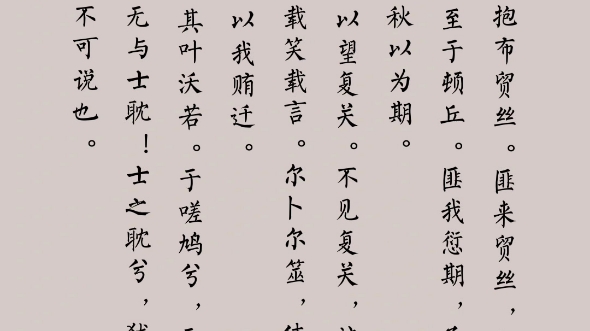 抱布贸丝。匪来贸丝，
至于顿丘。匪我愆期，
秋以为期。
以望复关。不见复关，
载笑载言。尔卜尔筮，
以我贿迁。
其叶沃若。于嗟鸠兮，
无与士耽！士之耽兮，
不可说也。